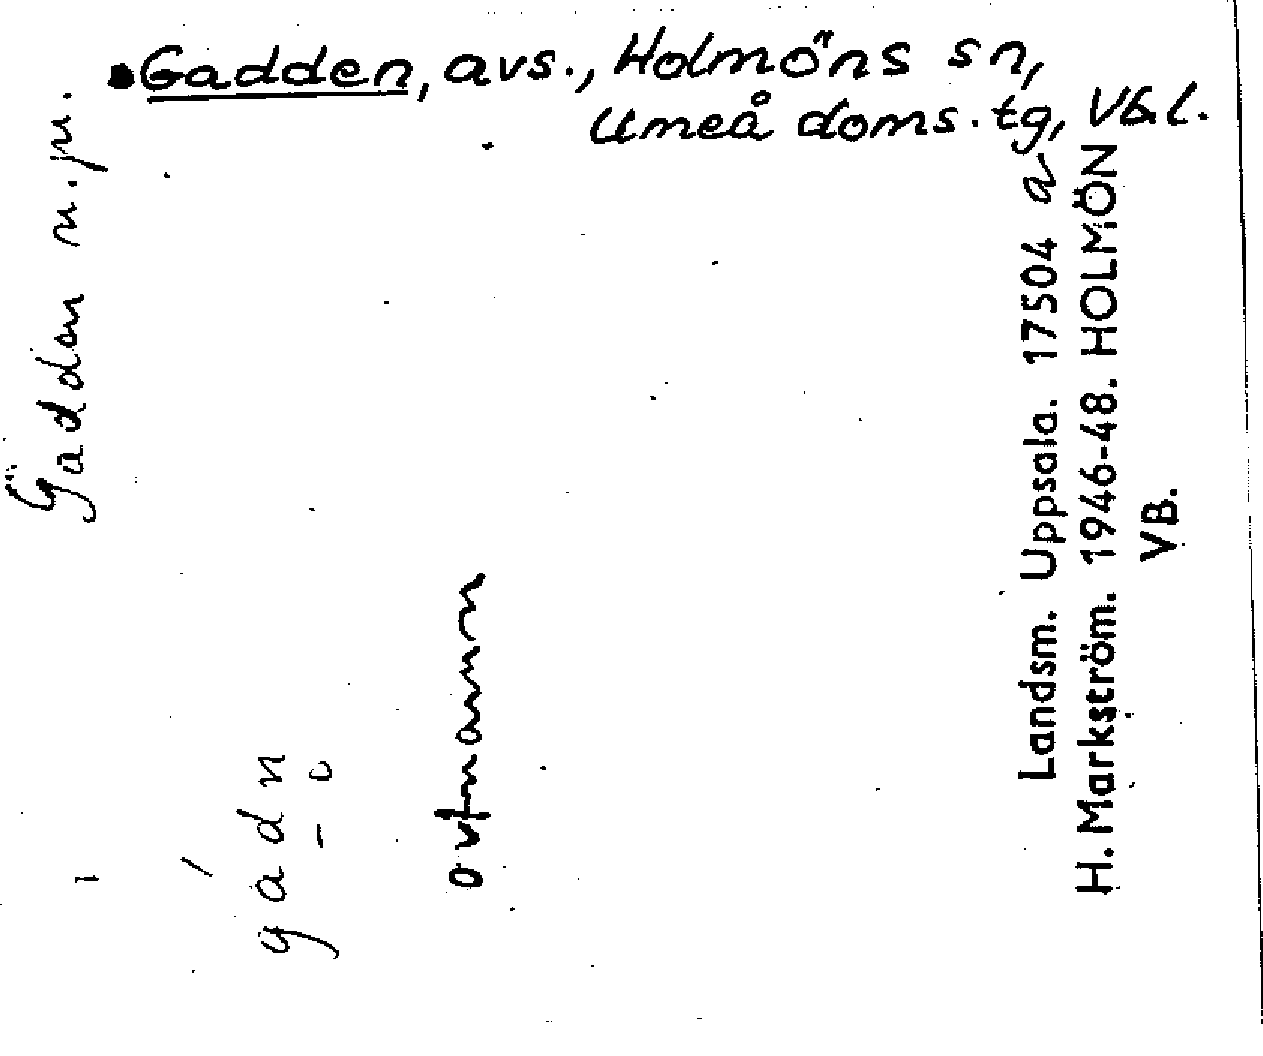 Gadden, avs., Holmöns sn,
Umeå doms. tg, Vb. l.
Gadden n. pr.
gadn
ovfnamn
Landsm. Uppsala. 17504 a
H. Markström. 1946-48. HOLMÖN
VB.